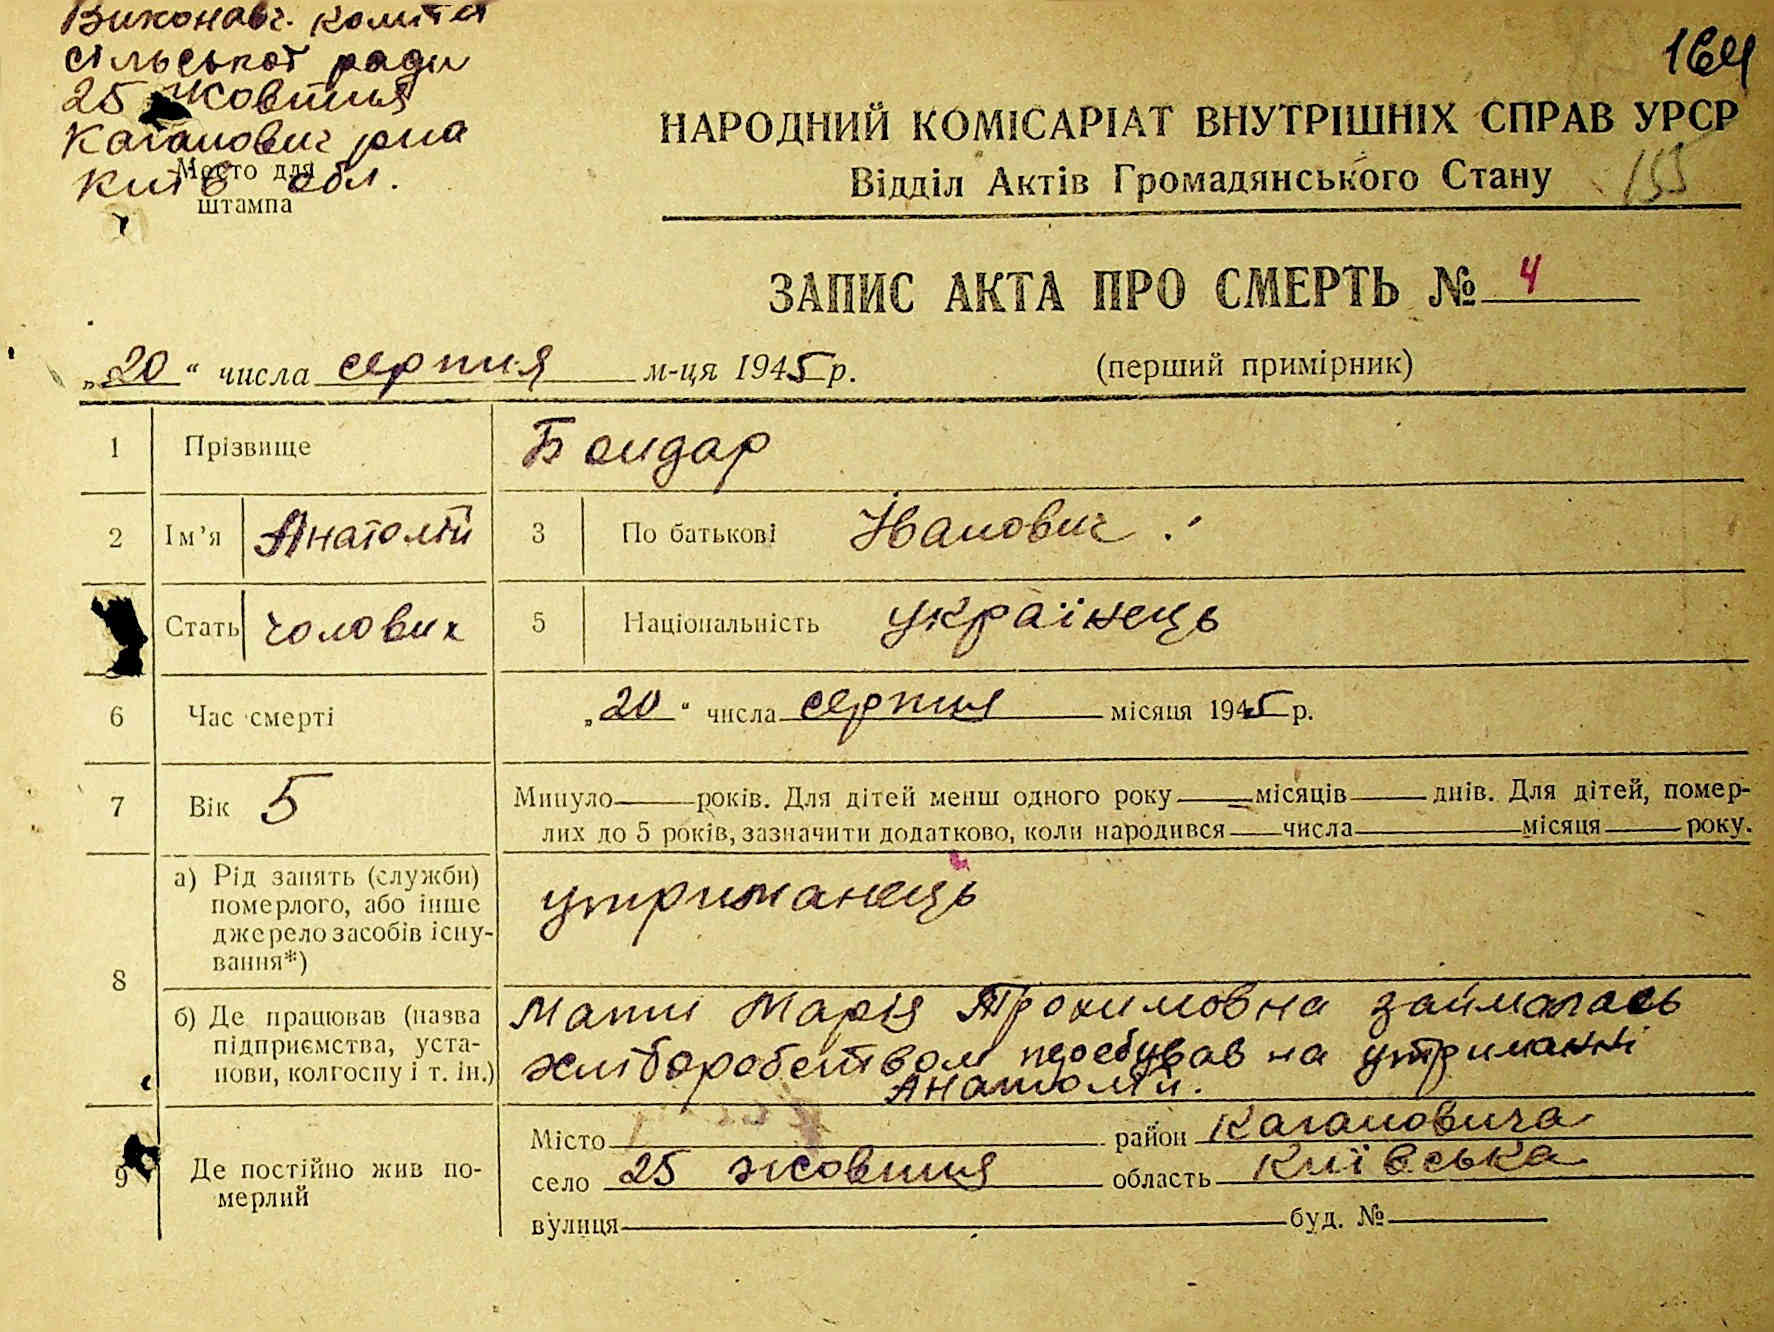 Виконавч. комітет
сільської ради
25 Жовтня
Каганович р-на
Київ обл.
Место для
штампа
164
НАРОДНИЙ КОМІСАРІАТ ВНУТРІШНІХ СПРАВ УРСР
Відділ Актів Громадянського Стану
155
ЗАПИС АКТА ПРО СМЕРТЬ № 4
„20“ числа серпня м-ця 1945 р. (перший примірник)
1 Прізвище Бондар
2 Ім’я Анатолій 3 По батькові Іванович.
Стать чоловик 5 Національність українець
6 Час смерті „20“ числа серпня місяця 1945 р.
7 Вік 5 Минуло років. Для дітей менш одного року місяців днів. Для дітей, помер-
лих до 5 років, зазначити додатково, коли народився числа місяця року.
8 а) Рід занять (служби)
померлого, або інше
джерело засобів існу-
вання*)
утриманець
б) Де працював (назва
підприємства, уста-
нови, колгоспу і т. ін.)
Мати Марія Трохимовна займалась
хліборобством перебував на утриманні
Анатолій.
9 Де постійно жив по-
мерлий
Місто район Кагановича
село 25 жовтня область Київська
вулиця буд. №